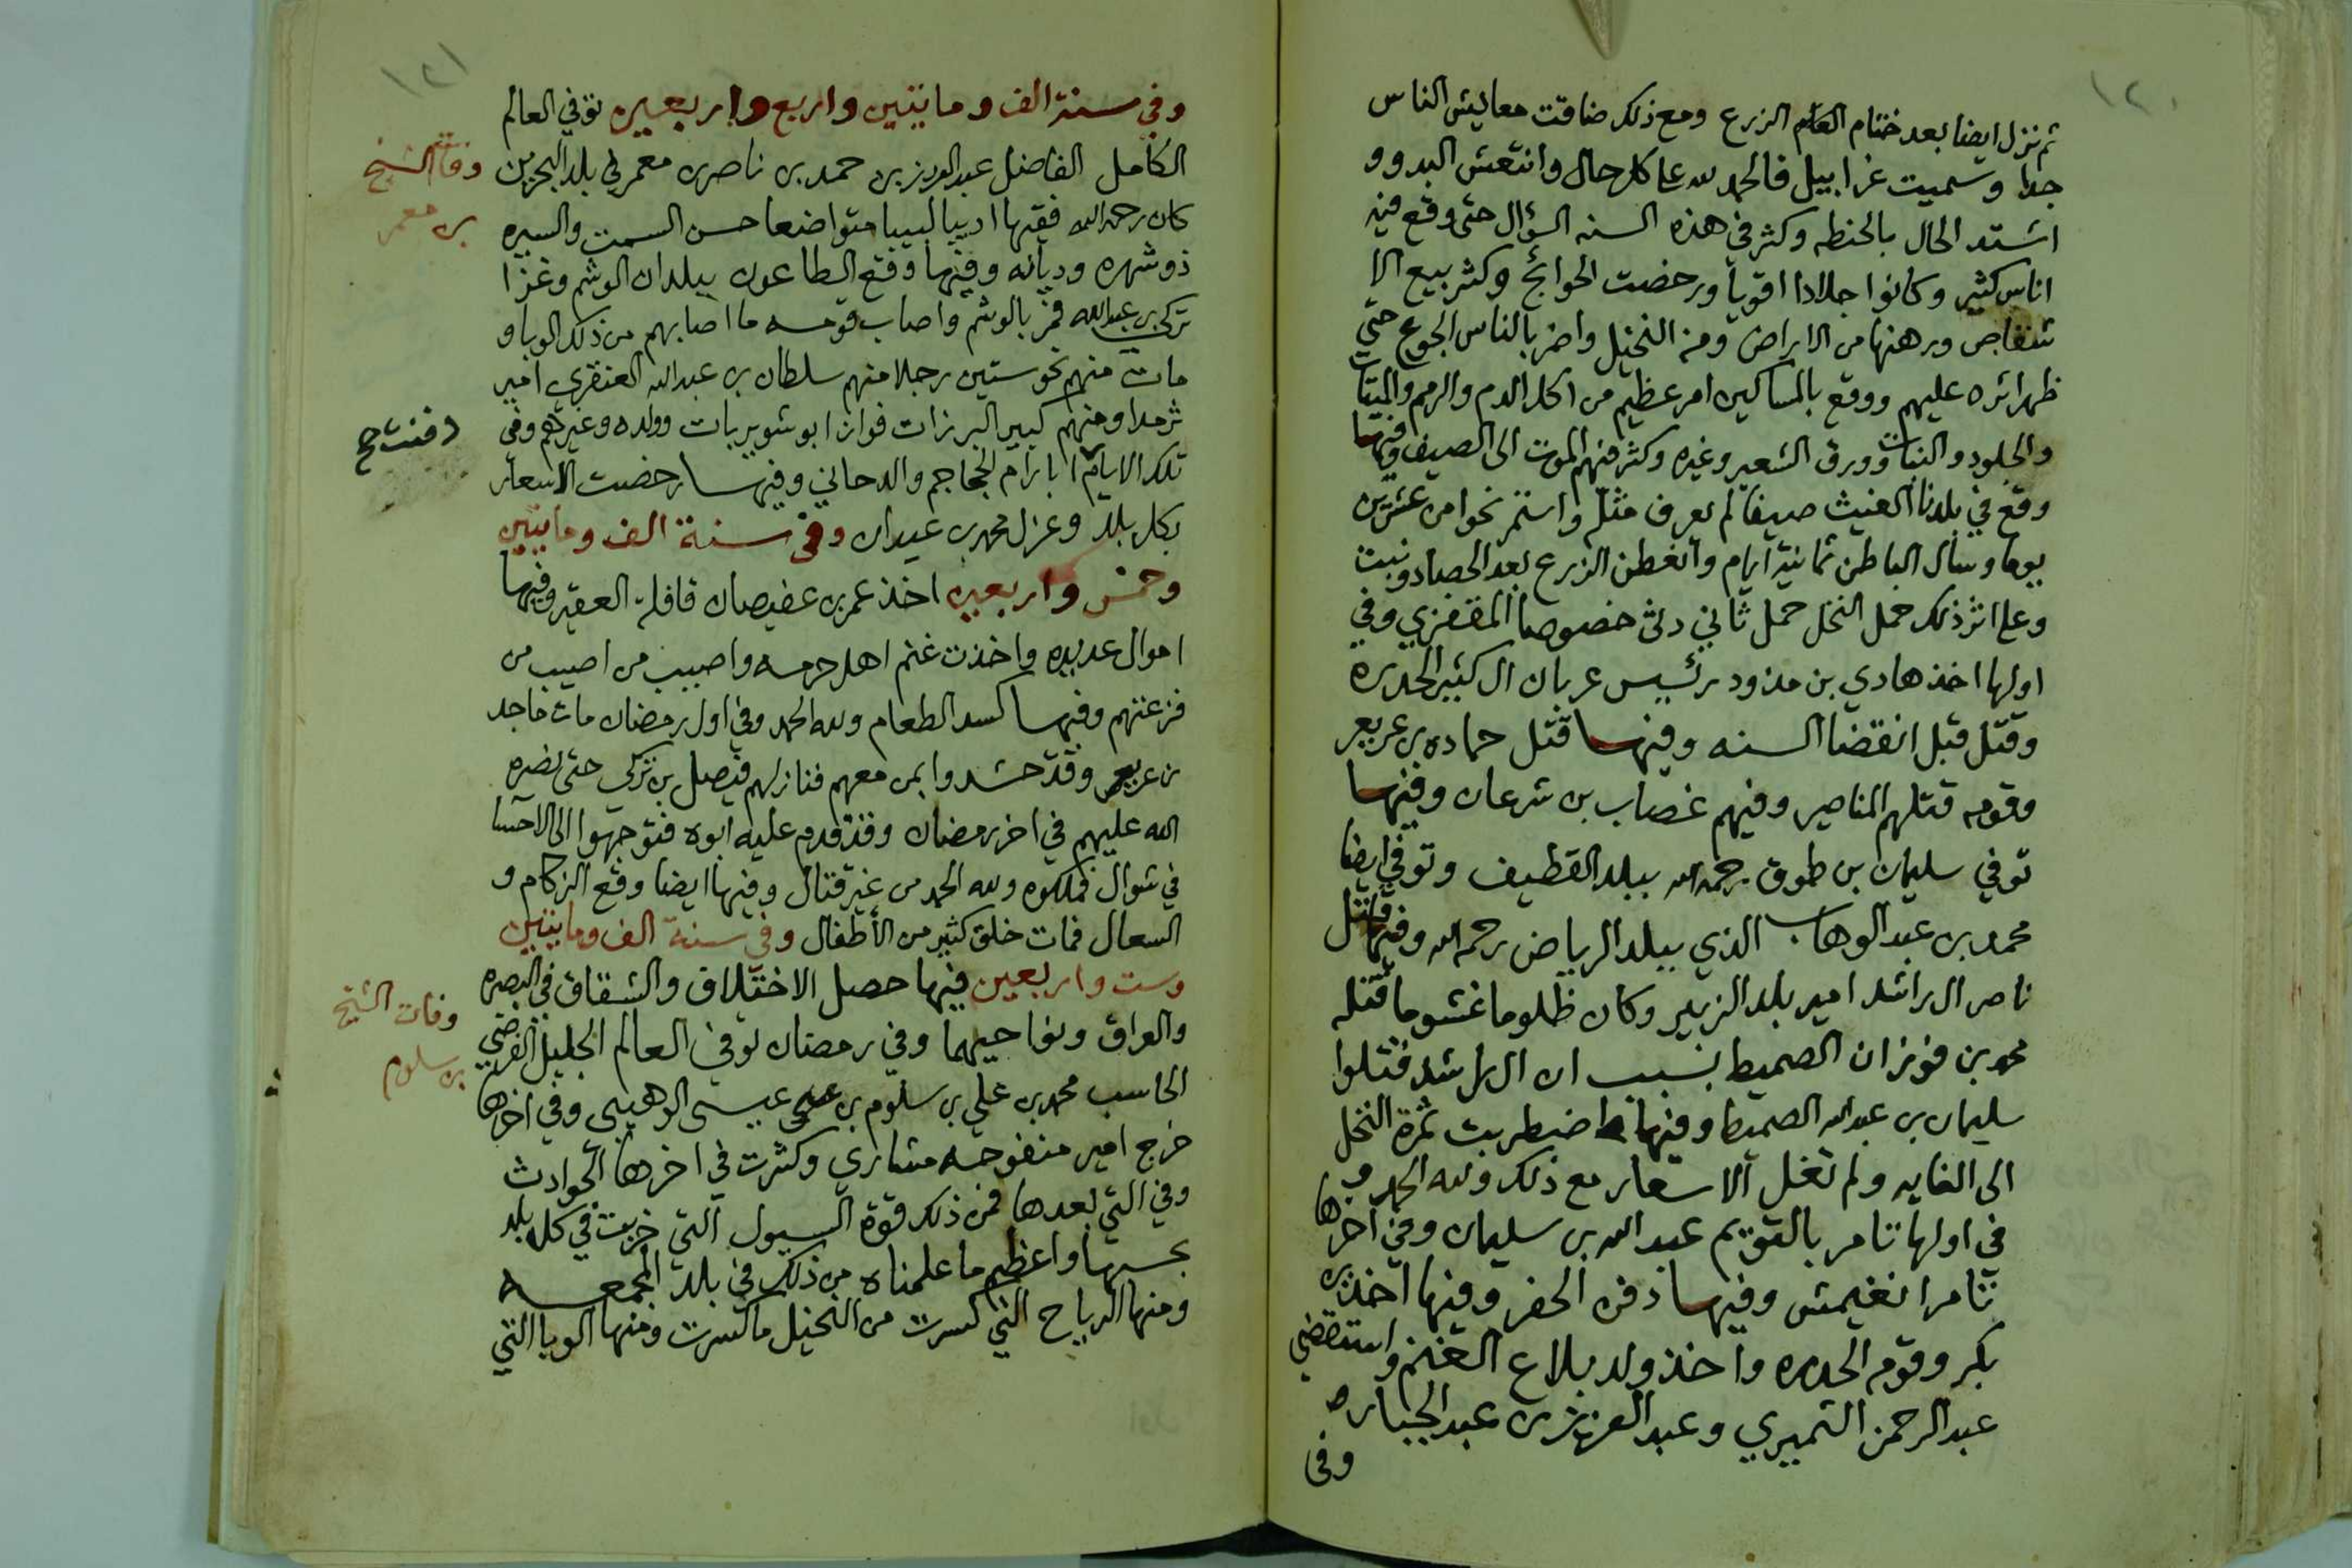 ١٢٠
ثم نزل ايضا بعد ختام العام الزرع ومع ذلك ضاقت معايش الناس
جدا وسميت غرابيل فالحمد لله على كل حال وانتعش البدو و
اشتد الحال بالحنطه وكثر في هذه السنه السؤال حتى وقع فيه
اناس كثير وكانوا جلادا اقويا ورخصت الحوائج وكثر بيع الا
شقاص ورهنها من الاراض ومن النخيل واضر بالناس الجوع حتى
ظهر اثره عليهم ووقع بالمساكين امر عظيم من اكل الدم والرمم والميتات
والجلود والنبات وورق الشعير وغيره وكثر فيهم الموت الى الصيف وفيها
وقع في بلدنا الغيث صيفا لم يعرف مثله واستمر نحوا من عشرين
يوما وسال الباطن ثمانية ايام وانغطن الزرع بعد الحصاد ونبت
وعلى اثر ذلك حمل النخل حمل ثاني خصوصا المقفزي وفي
اولها اخذ هادي بن مذود رئيس عربان ال كثير الحدره
وقتل قبل انقضا السنه وفيها قتل حماده بن عريعر
وقومه قتلهم المناصير وفيهم غصاب بن شرعان وفيها
توفي سليمان بن طوق رحمه الله ببلد القطيف وتوفي ايضا
محمد بن عبد الوهاب الذي ببلد الرياض رحمه الله وفيها قتل
ناصر ال راشد امير بلد الزبير وكان ظلوما غشوما قتله
محمد بن فوزان الصميط بسبب ان ال راشد قتلوا
سليمان بن عبد الله الصميط وفيها اضطربت ثمرة النخل
الى الغايه ولم تغل الاسعار مع ذلك ولله الحمد و
في اولها تامر بالقويم عبد الله بن سليمان وفي اخرها
تامر انغيمش وفيها دفن الحفر وفيها اخذ بن
بكر وقوم الحدره واخذ ولد بلاع الغنم واستقضي
عبد الرحمن الثميري وعبد العزيز بن عبد الجبار
وفي
١٢١
وفي سنة الف وماتين واربع واربعين توفي العالم
الكامل الفاضل عبد العزيز بن حمد بن ناصر بن معمر في بلد البحرين
وفات الشيخ
بن معمر
كان رحمه الله فقيها اديبا لبيبا متواضعا حسن السمت والسيره
ذو شهره وديانه وفيها وقع الطاعون ببلدان الوشم وغزا
تركي بن عبد الله فمر بالوشم واصاب قومه ما اصابهم من ذلك الوبا و
مات منهم نحو ستين رجلا منهم سلطان بن عبد الله العنقري امير
ثرمدا ومنهم كبير البرزات فواز ابو شويربات وولده وغيرهم وفي
تلك الايام ابارام الجماجم والدحاني وفيها رخصت الاسعار
بكل بلد وعزل محمد بن عيدان وفي سنة الف وماتين
وخمس واربعين اخذ عمر بن عفيصان قافلة العقير وفيها
اموال عديده واخذت غنم اهل حرمه واصيب من اصيب من
فزعتهم وفيها كسد الطعام ولله الحمد وفي اول رمضان مات ماجد
بن عريعر وقد حشدوا بمن معهم فنازلهم فيصل بن تركي حتى نصره
الله عليهم في اخر رمضان وقد قدم عليه ابوه فتوجهوا الى الاحسا
في شوال فملكوه ولله الحمد من غير قتال وفيها ايضا وقع الزكام و
السعال فمات خلق كثير من الأطفال وفي سنة الف وماتين
وست واربعين فيها حصل الاختلاف والشقاق في البصره
والعراق ونواحيهما وفي رمضان توفي العالم الجليل الفرضي
وفات الشيخ
بن سلوم
الحاسب محمد بن علي بن سلوم بن عيسى الوهيبي وفي اخرها
خرج امير منفوحه مشاري وكثرت في اخرها الحوادث
وفي التي بعدها فمن ذلك قوة السيول التي خربت في كل بلد
بحسبها واعظم ما علمناه من ذلك في بلد المجمعه
ومنها الرياح التي كسرت من النخيل ما كسرت ومنها الوبا التي